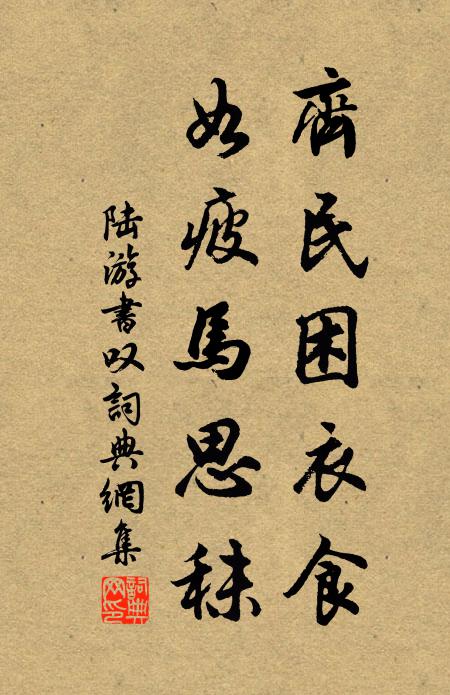 齊民困衣食
如疲馬思秣
陆游書叹詞典網集
詞典網印